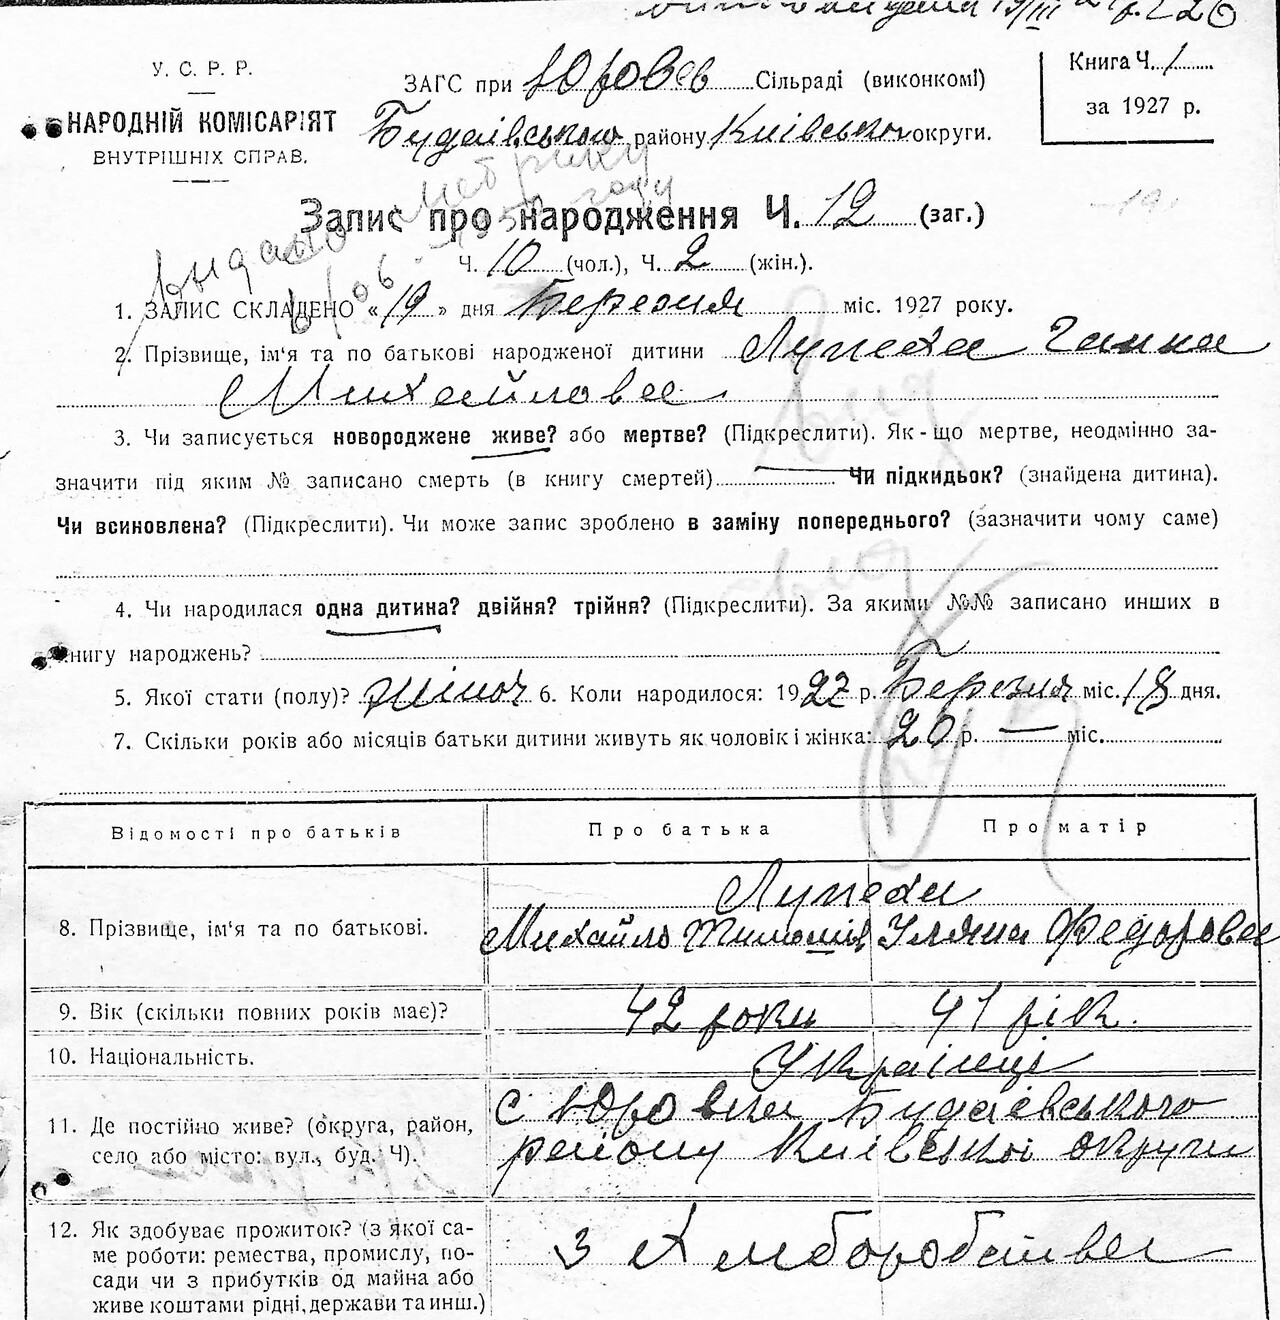 У. С. Р. Р.
НАРОДНІЙ КОМІСАРІЯТ
ВНУТРІШНІХ СПРАВ.
ЗАГС при Юровсь Сільраді (виконкомі)
Будаївського району Київської округи.
Книга Ч. 1
за 1927 р.
Видано метрику
Запис про народження Ч. 12 (заг.)
Ч. 10 (чол.), Ч. 2 (жін.).
1. ЗАПИС СКЛАДЕНО «19» дня Березня міс. 1927 року.
2. Прізвище, ім'я та по батькові народженої дитини Лупеха Ганна
Михайловна
3. Чи записується новороджене живе? або мертве? (Підкреслити). Як-що мертве, неодмінно за-
значити під яким № записано смерть (в книгу смертей) Чи підкидьок? (знайдена дитина).
Чи всиновлена? (Підкреслити). Чи може запис зроблено в заміну попереднього? (зазначити чому саме)
4. Чи народилася одна дитина? двійня? трійня? (Підкреслити). За якими №№ записано инших в
книгу народжень?
5. Якої стати (полу)? жіноч 6. Коли народилося: 1927 р. Березня міс. 18 дня.
7. Скільки років або місяців батьки дитини живуть як чоловік і жінка: 20 р. — міс.
Відомості про батьків Про батька Про матір
Лупеха
8. Прізвище, ім'я та по батькові. Михайло Тимоші Уляна Федоровна
9. Вік (скільки повних років має)? 42 роки 41 рік.
10. Національність. Українці
11. Де постійно живе? (округа, район,
село або місто: вул., буд. Ч).
с Юровка Будаївського
району Київської округи
12. Як здобуває прожиток? (з якої са-
ме роботи: ремества, промислу, по-
сади чи з прибутків од майна або
живе коштами рідні, держави та инш.)
З Хліборобства